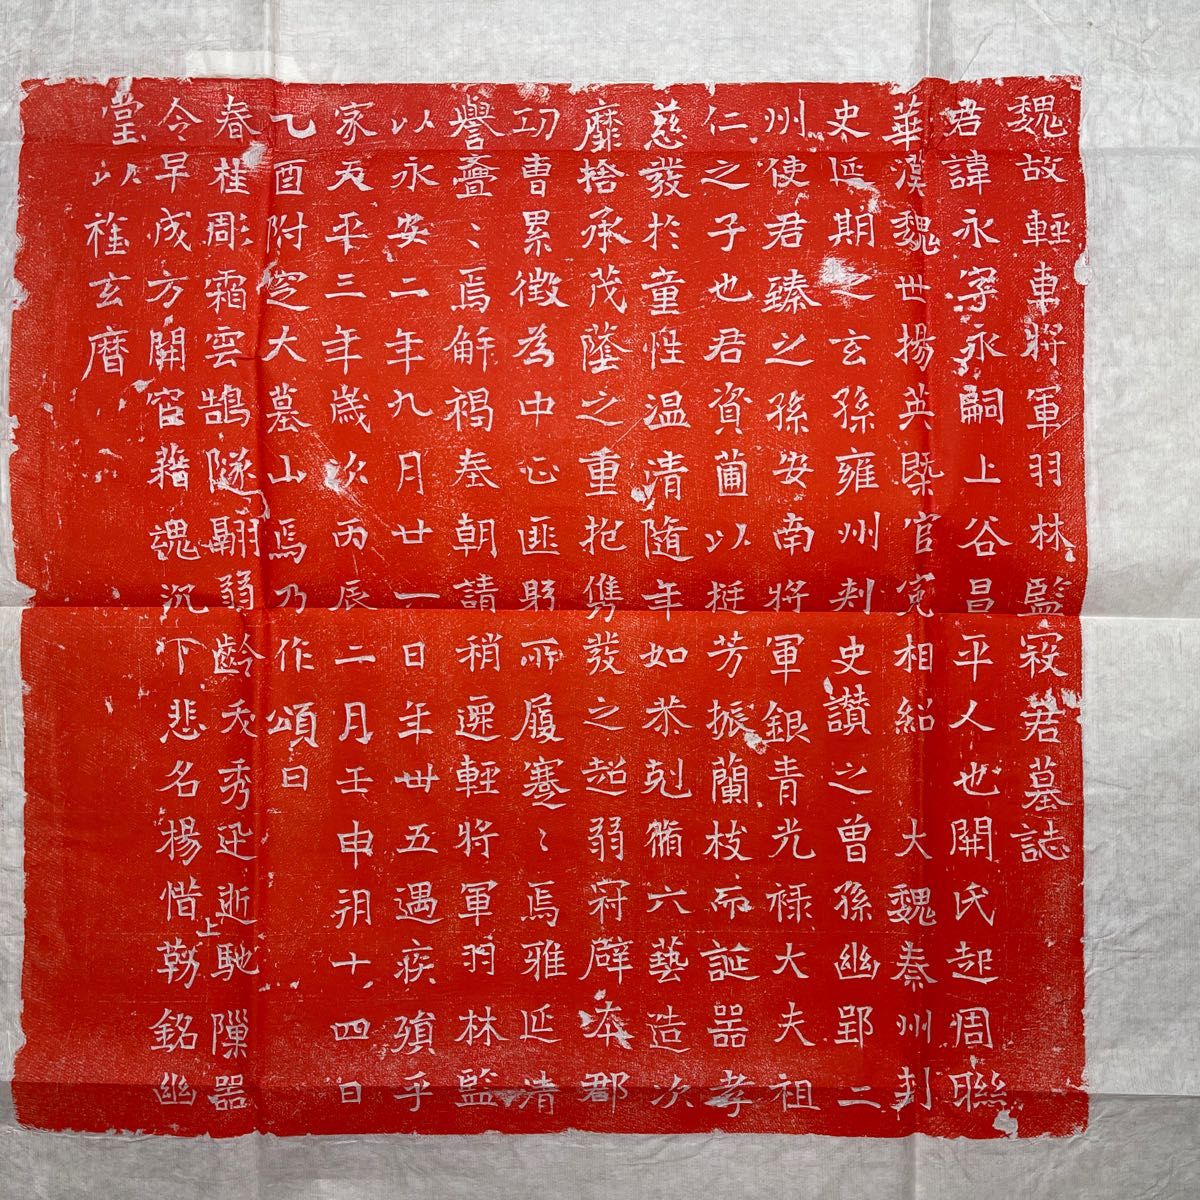 魏故輕車將軍羽林監寇君墓誌
君諱永字永嗣上谷昌平人也開氏起周聯
華漢魏世揚英旣官冠相紹大魏秦州刺
史延期之玄孫雍州刺史讚之曾孫幽郢二
州使君臻之孫安南將軍銀青光祿大夫祖
仁之子也君資蘭以挺芳振蘭枝而誕器孝
慈發於童性温清隨年如恭剋脩六藝造次
靡捨承茂蔭之重抱雋發之超弱冠辟本郡
功曹累徵為中正匪躬所履蹇〻焉雅延清
譽亹〻焉解褐奉朝請稍遷輕將軍羽林監
以永安二年九月廿一日年卅五遇疾殞乎
家天平三年歲次丙辰二月壬申朔十四日
乙酉附窆大墓山焉乃作頌曰
春桂彫霜雲鵠墜翮弱齡秀迅逝馳隟器
令早成方開官藉魂沉下悲名揚惜上勒銘幽
堂以旌玄曆